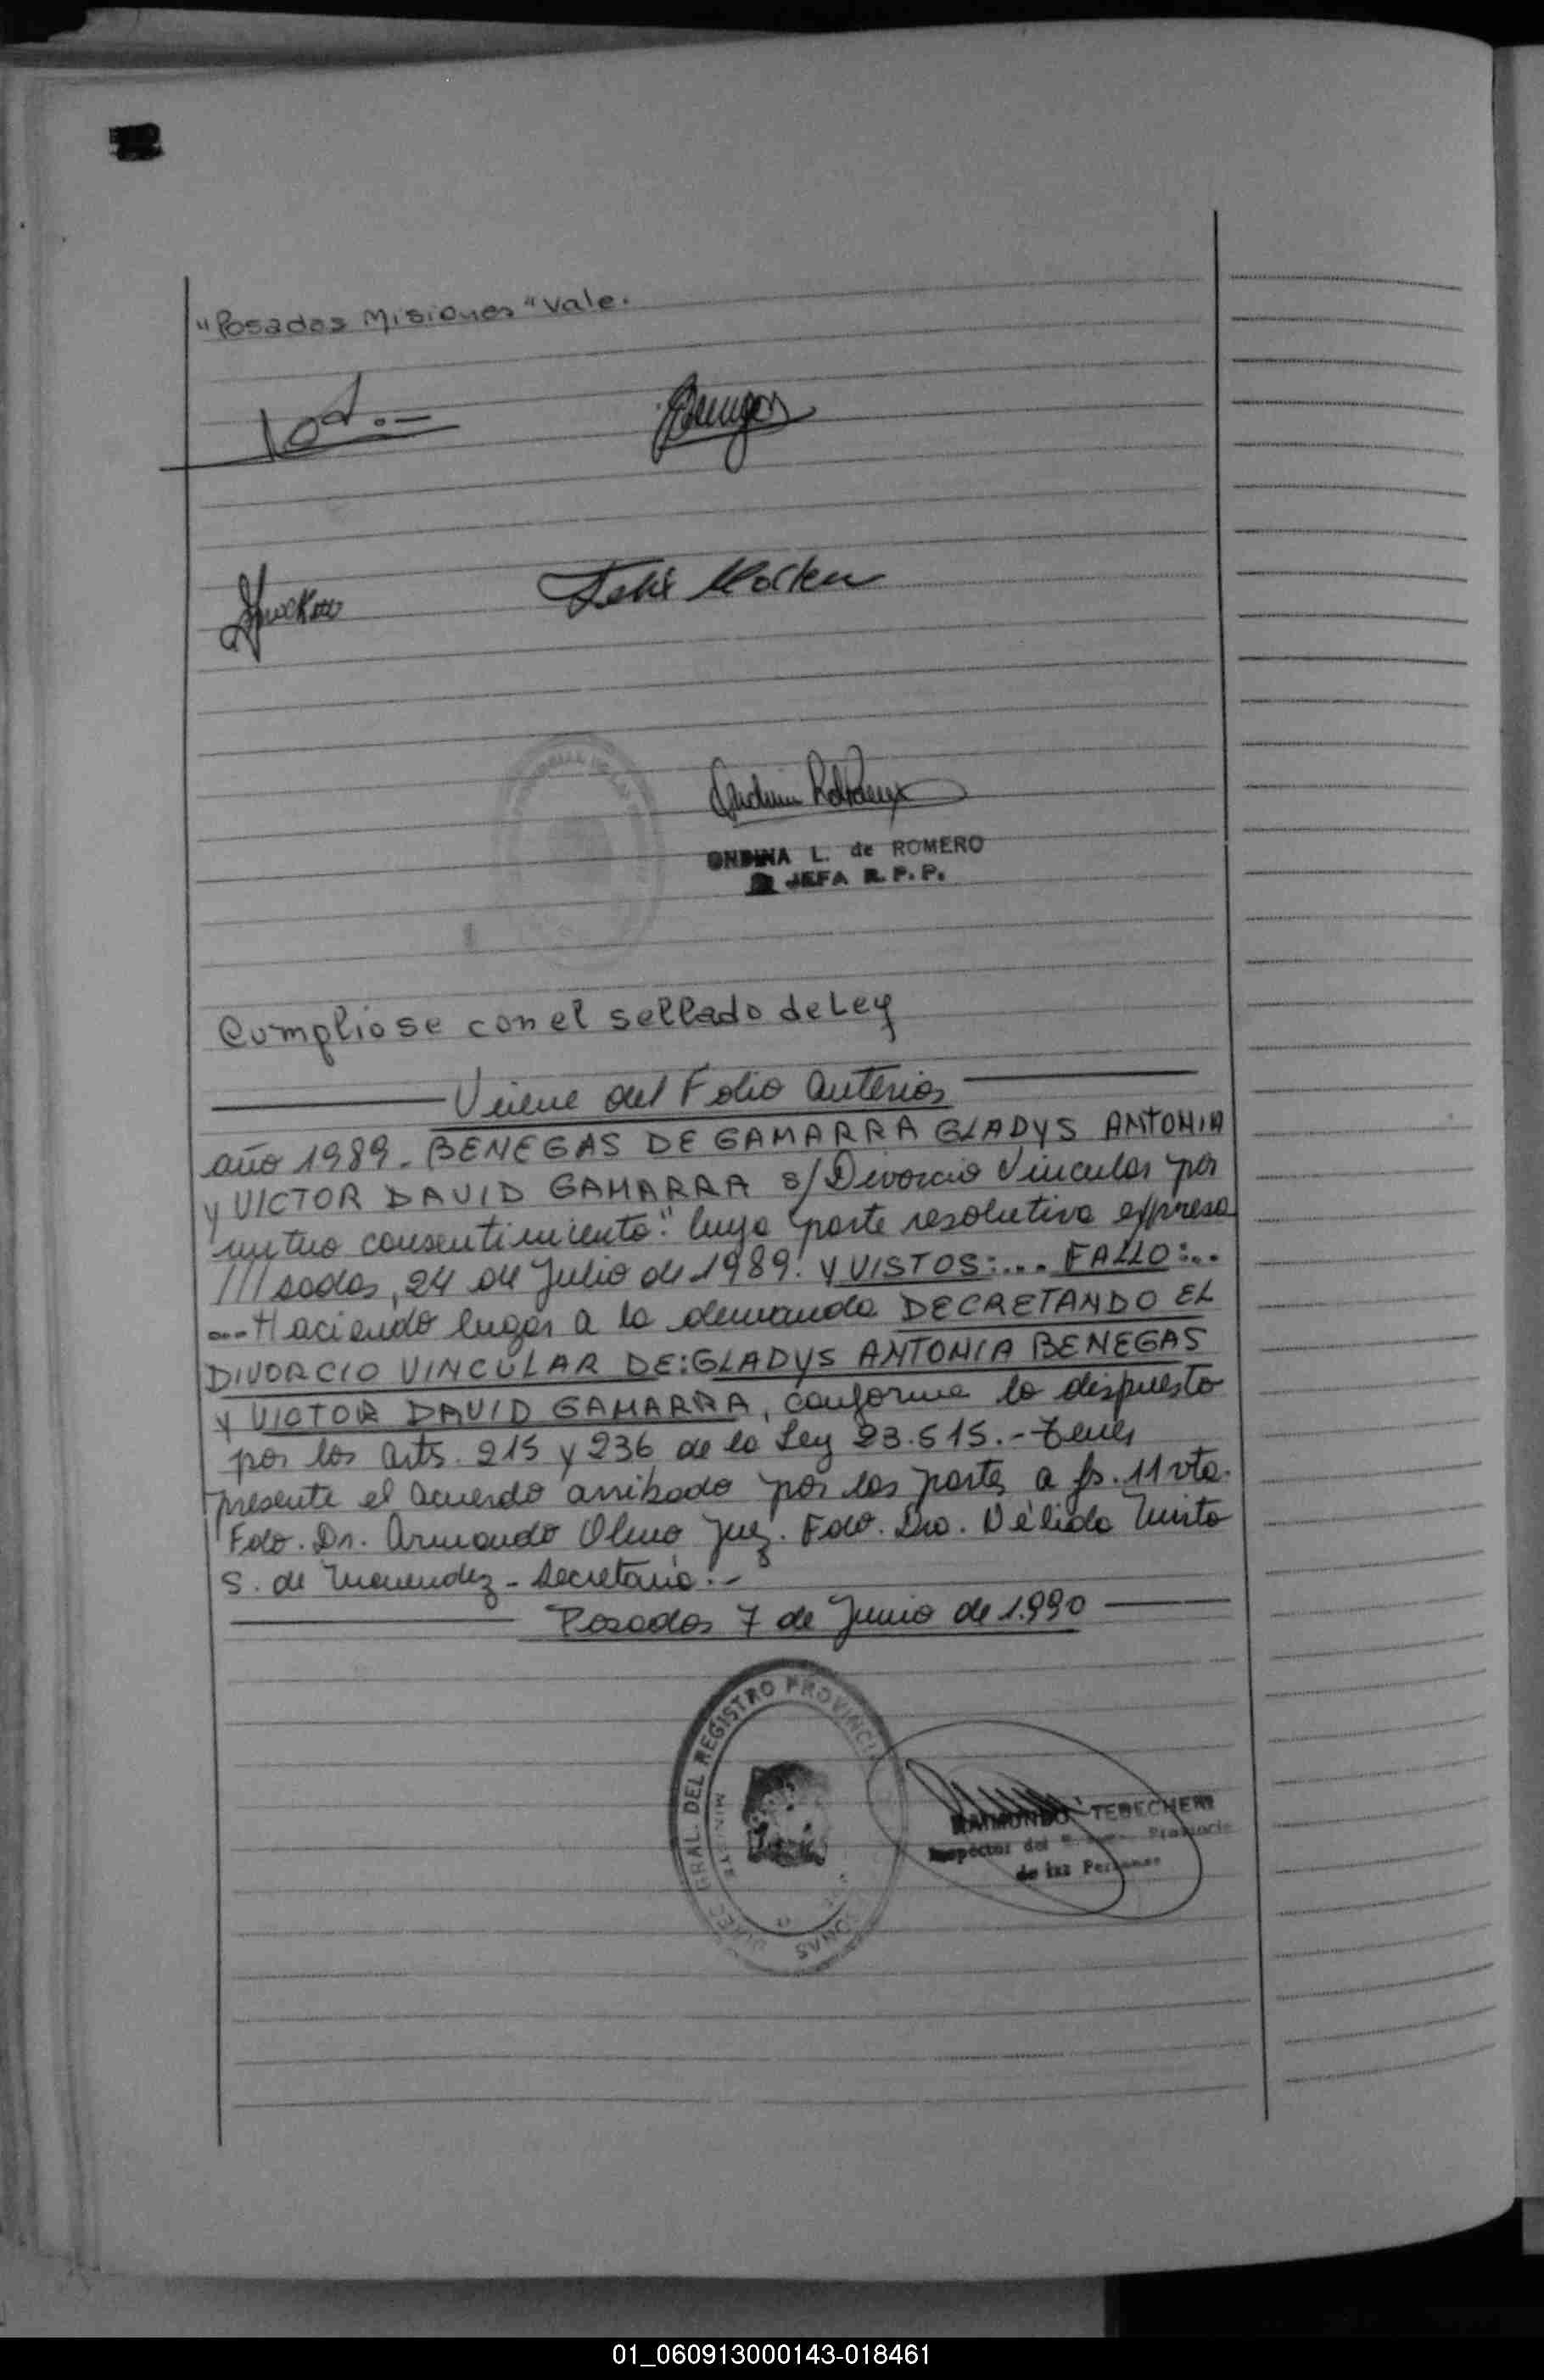 "Posadas Misiones" vale.
ONDINA L. de ROMERO
JEFA R.P.P.
Cumpliose con el sellado de Ley
Viene del Folio anterior
año 1989. BENEGAS DE GAMARRA GLADYS ANTONIA
y VICTOR DAVID GAMARRA s/ Divorcio Vincular por
mutuo consentimiento." Cuya parte resolutiva expresa
///sadas, 24 de Julio de 1989. y VISTOS:... FALLO:..
...Haciendo lugar a la demanda DECRETANDO EL
DIVORCIO VINCULAR DE: GLADYS ANTONIA BENEGAS
y VICTOR DAVID GAMARRA, conforme lo dispuesto
por los arts. 215 y 236 de la Ley 23.515.- Tener
presente el acuerdo arribado por las partes a fs. 11 vta.
Fdo. Dr. Armando Olmo Juez. Fdo. Dra. Nélida
S. de Menendez - Secretaria.-
Posadas 7 de Junio de 1.990
DIREC GRAL. DEL REGISTRO PROVINCIAL
RAIMUNDO TEBECHERI
Inspector del Provincial
de las Personas
01_060913000143-018461